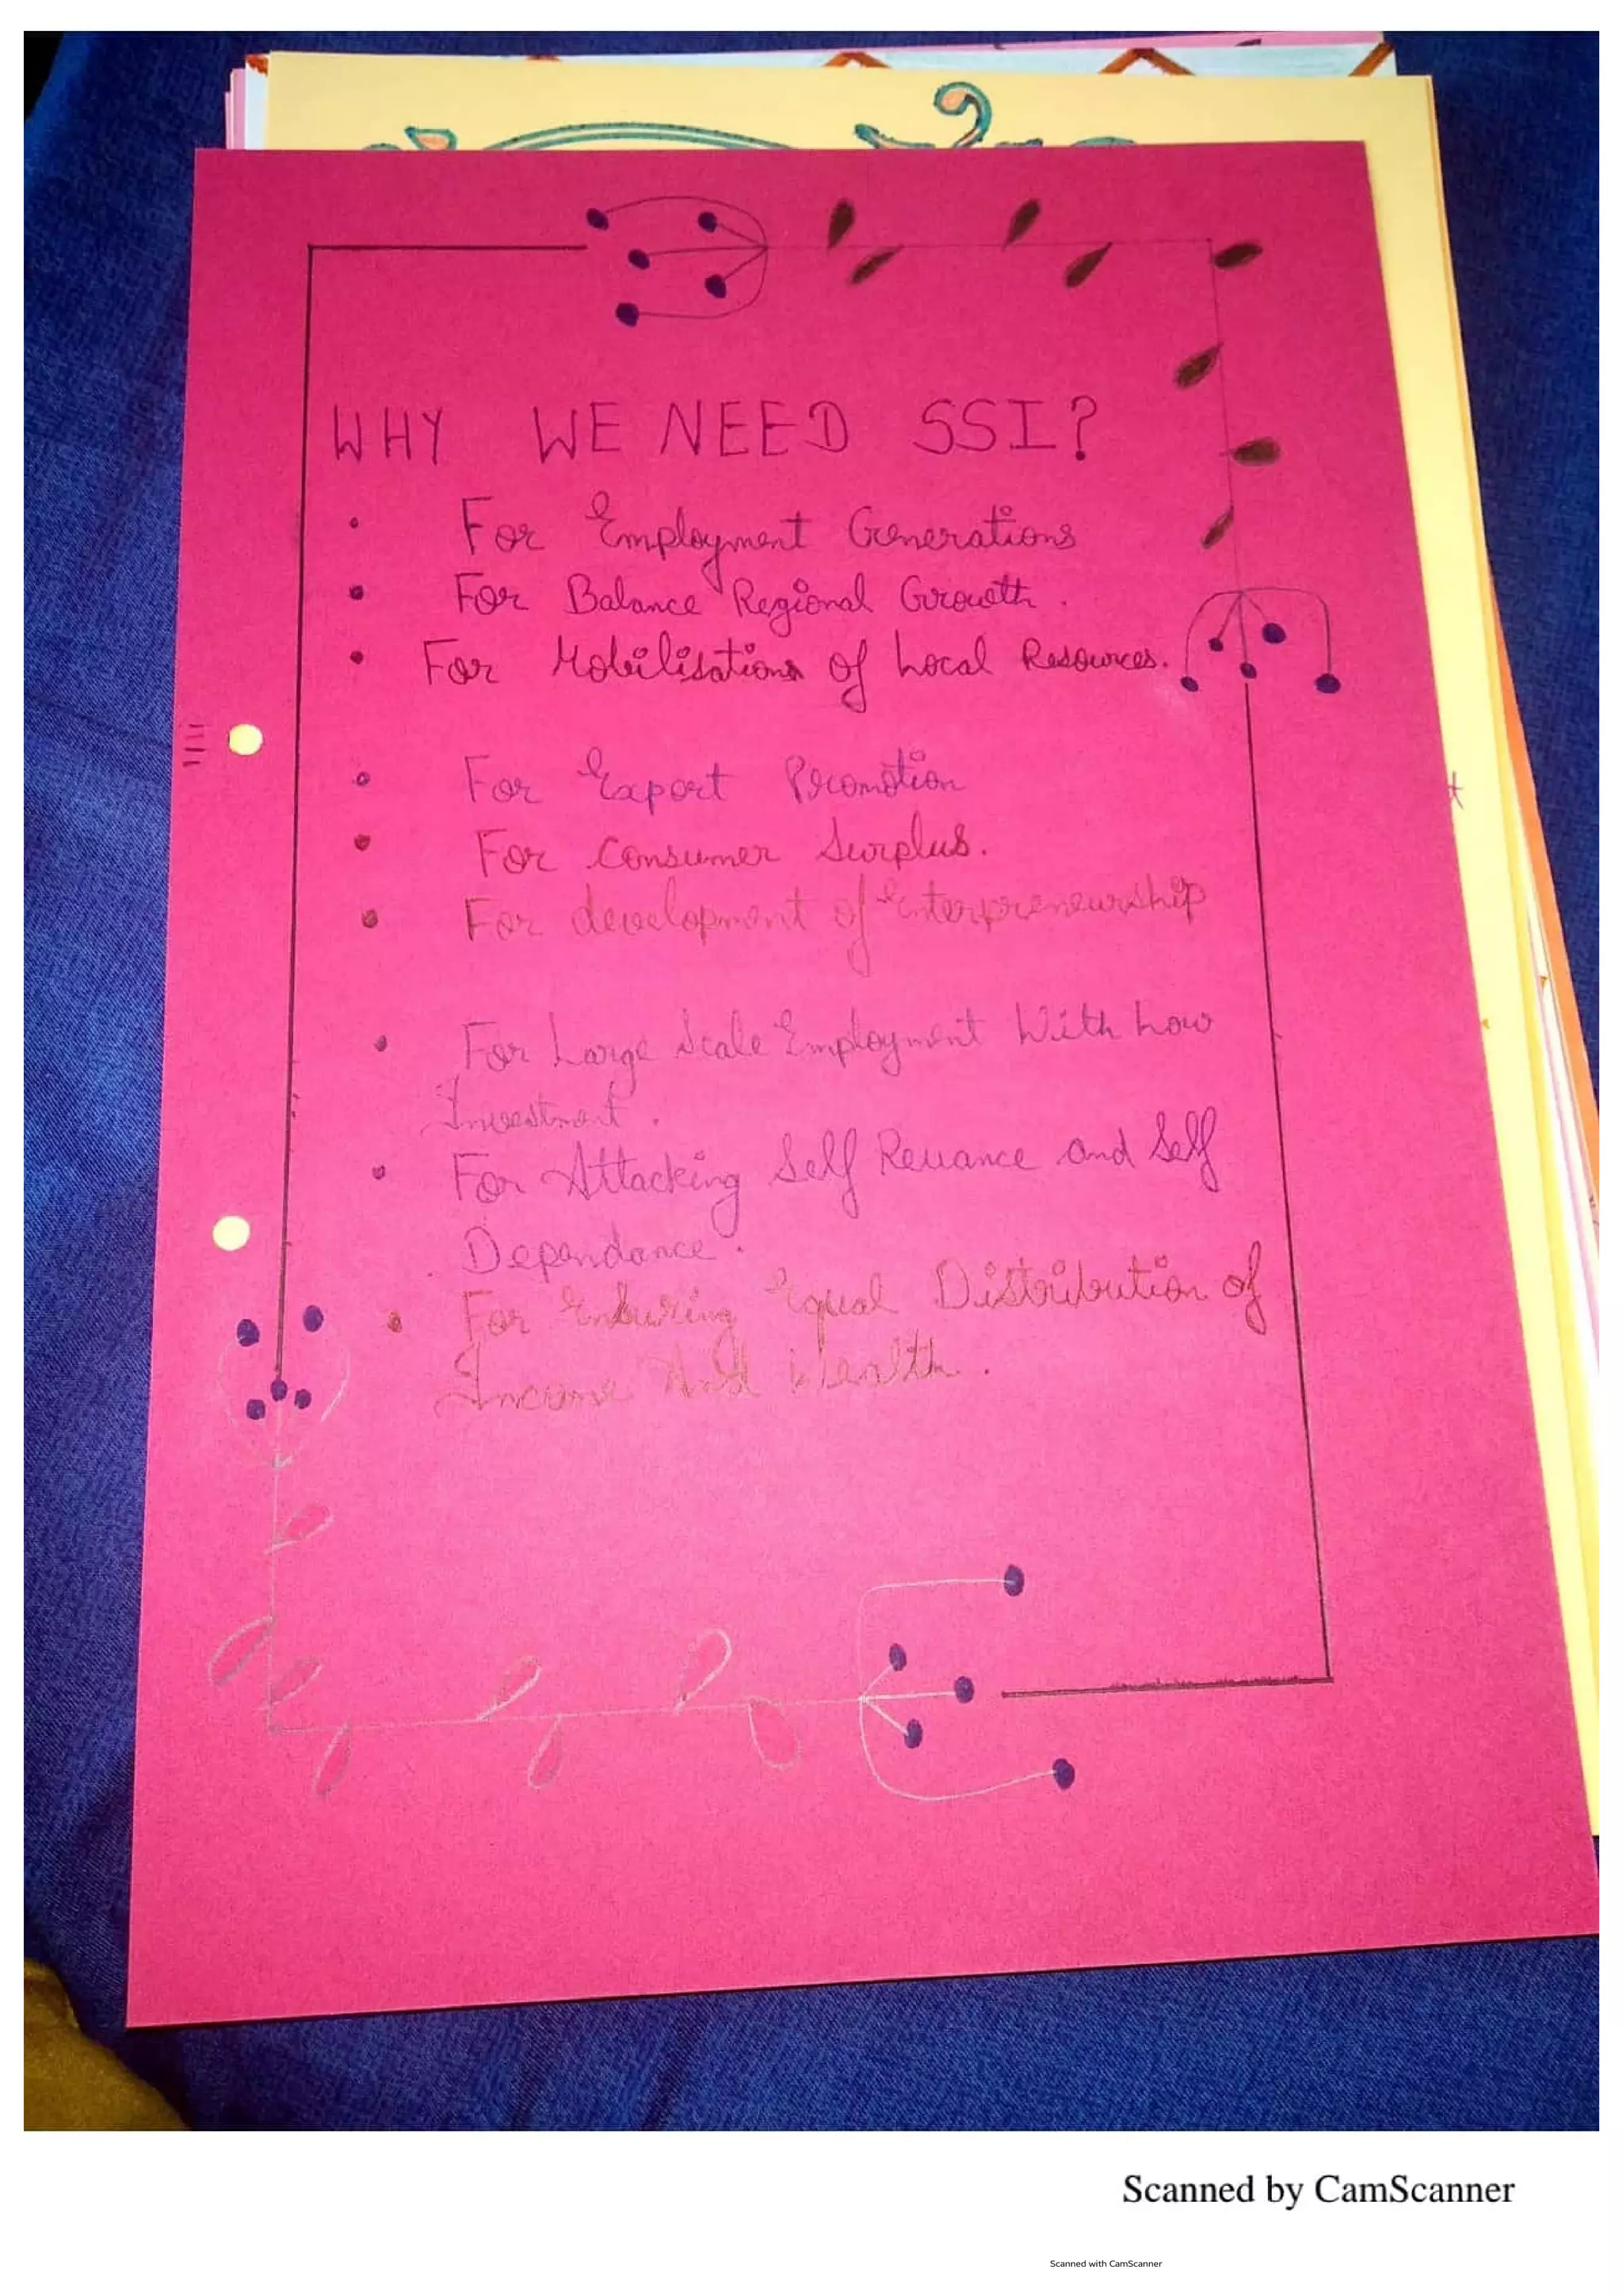 WHY WE NEED SSI?
• For Employment Generations
• For Balance Regional Growth.
• For Mobilisations of Local Resources.
• For Export Promotion
• For Consumer Surplus.
• For development of Enterpreneurship
• For Large Scale Employment With Low
Investment.
• For Attacking Self Reliance and Self
Dependance.
• For Ensuring Equal Distribution of
Income And Wealth.
Scanned by CamScanner
Scanned with CamScanner